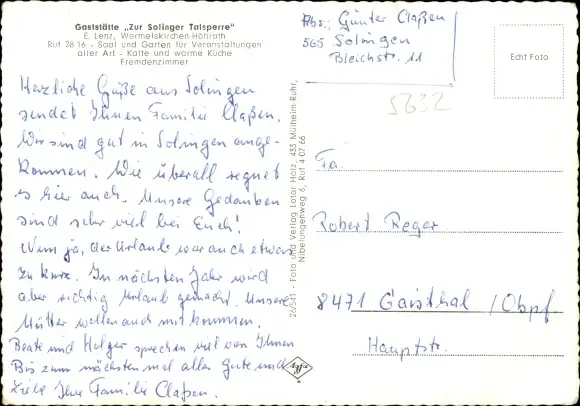 Gaststätte „Zur Solinger Talsperre"
E. Lenz, Wermelskirchen-Höhrath
Ruf 28 16 - Saal und Garten für Veranstaltungen
aller Art - Kalte und warme Küche
Fremdenzimmer
Herzliche Grüße aus Solingen
sendet Ihnen Familie Claßen.
Wir sind gut in Solingen ange-
kommen. Wie überall regnet
es hier auch. Unsere Gedanken
sind sehr viel bei Euch!
Nun ja, der Urlaub war auch etwas
zu kurz. In nächsten Jahr wird
aber richtig Urlaub gemacht. Unsere
Mütter wollen auch mit kommen.
Beate und Holger sprechen viel von Ihnen
Bis zum nächsten mal alles Gute und
Ihre Familie Claßen.
26/241 - Foto und Verlag Lotar Holz, 433 Mülheim-Ruhr,
Nibelungenweg 6, Ruf 4 07 66
Abs.: Günter Claßen
565 Solingen
Bleichstr. 11
Echt Foto
5632
Fa.
Robert Reger
8471 Gaisthal / Obpf
Hauptstr.
Agfa